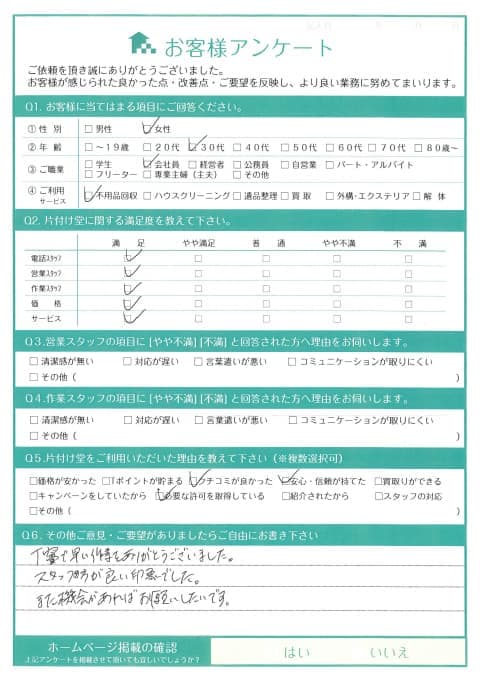 記入日 年 月 日
お客様アンケート
ご依頼を頂き誠にありがとうございました。
お客様が感じられた良かった点・改善点・ご要望を反映し、より良い業務に努めてまいります。
Q1. お客様に当てはまる項目にご回答ください。
①性 別 □男性 ☑女性
②年 齢 □~19歳 □20代 ☑30代 □40代 □50代 □60代 □70代 □80歳~
③ご職業 □学生 ☑会社員 □経営者 □公務員 □自営業 □パート・アルバイト
□フリーター □専業主婦(主夫) □その他
④ご利用サービス ☑不用品回収 □ハウスクリーニング □遺品整理 □買取 □外構・エクステリア □解 体
Q2. 片付け堂に関する満足度を教えて下さい。
満 足 やや満足 普 通 やや不満 不 満
電話スタッフ ☑ □ □ □ □
営業スタッフ ☑ □ □ □ □
作業スタッフ ☑ □ □ □ □
価 格 ☑ □ □ □ □
サービス ☑ □ □ □ □
Q3.営業スタッフの項目に[やや不満][不満]と回答された方へ理由をお伺いします。
□清潔感が無い □対応が遅い □言葉遣いが悪い □コミュニケーションが取りにくい
□その他( )
Q4.作業スタッフの項目に[やや不満][不満]と回答された方へ理由をお伺いします。
□清潔感が無い □対応が遅い □言葉遣いが悪い □コミュニケーションが取りにくい
□その他( )
Q5.片付け堂をご利用いただいた理由を教えて下さい(※複数選択可)
□価格が安かった □Tポイントが貯まる ☑クチコミが良かった ☑安心・信頼が持てた □買取りができる
□キャンペーンをしていたから ☑必要な許可を取得している □紹介されたから □スタッフの対応
□その他( )
Q6. その他ご意見・ご要望がありましたらご自由にお書き下さい
丁寧で早い作業をありがとうございました。
スタッフの方が良い印象でした。
また機会があればお願いしたいです。
ホームページ掲載の確認
上記アンケートを掲載させて頂いても宜しいでしょうか?
はい いいえ